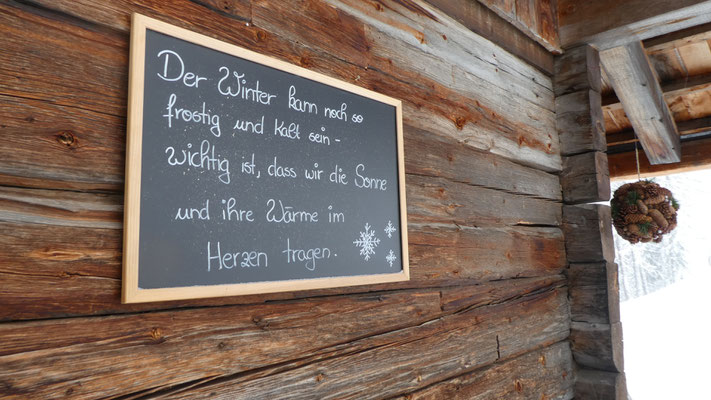 Der Winter kann noch so
frostig und kalt sein -
wichtig ist, dass wir die Sonne
und ihre Wärme im
Herzen tragen.